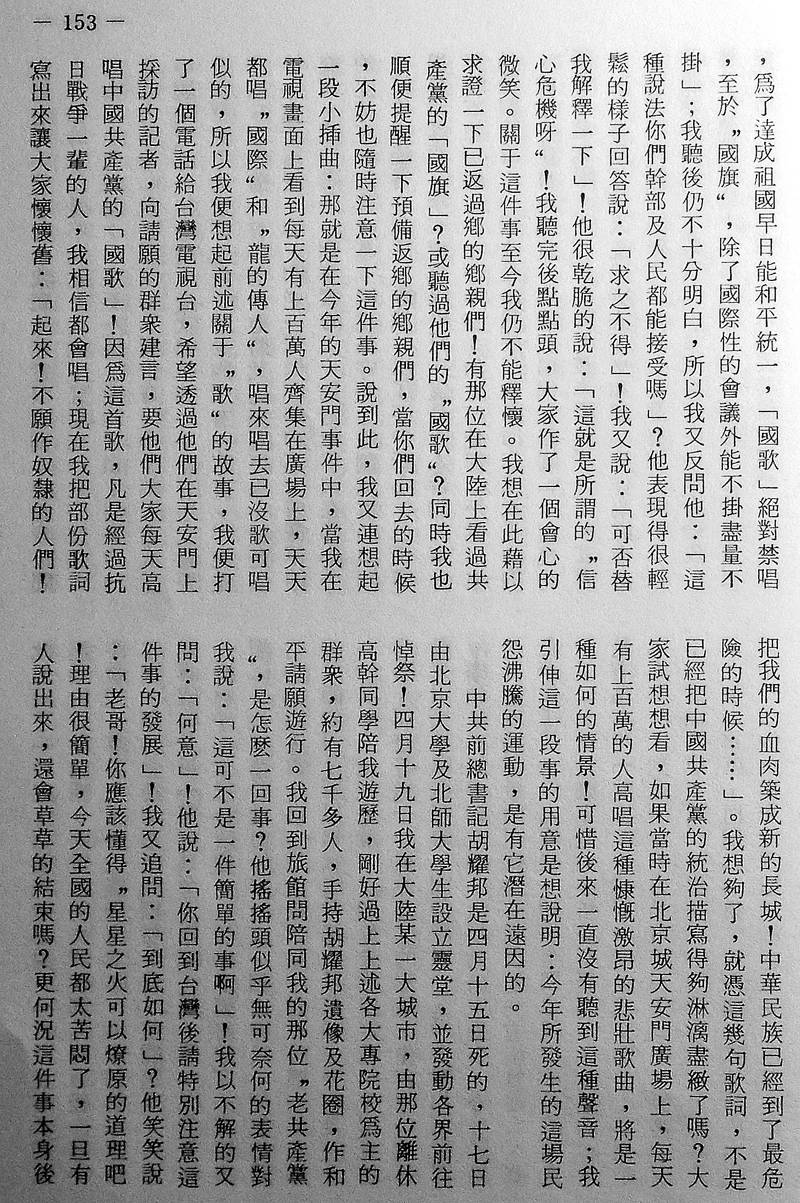 — 153 —
，爲了達成祖國早日能和平統一，「國歌」絕對禁唱
，至於〞國旗〝，除了國際性的會議外能不掛盡量不
掛」；我聽後仍不十分明白，所以我又反問他：「這
種說法你們幹部及人民都能接受嗎」？他表現得很輕
鬆的樣子回答說：「求之不得」！我又說：「可否替
我解釋一下」！他很乾脆的說：「這就是所謂的〞信
心危機呀〝！我聽完後點點頭，大家作了一個會心的
微笑。關于這件事至今我仍不能釋懷。我想在此藉以
求證一下已返過鄉的鄉親們！有那位在大陸上看過共
產黨的「國旗」？或聽過他們的〞國歌〝？同時我也
順便提醒一下預備返鄉的鄉親們，當你們回去的時候
，不妨也隨時注意一下這件事。說到此，我又連想起
一段小挿曲：那就是在今年的天安門事件中，當我在
電視畫面上看到每天有上百萬人齊集在廣場上，天天
都唱〞國際〝和〞龍的傳人〝，唱來唱去已沒歌可唱
似的，所以我便想起前述關于〞歌〝的故事，我便打
了一個電話給台灣電視台，希望透過他們在天安門上
採訪的記者，向請願的群衆建言，要他們大家每天高
唱中國共產黨的「國歌」！因爲這首歌，凡是經過抗
日戰爭一輩的人，我相信都會唱；現在我把部份歌詞
寫出來讓大家懷懷舊：「起來！不願作奴隸的人們！
把我們的血肉築成新的長城！中華民族已經到了最危
險的時候……」。我想夠了，就憑這幾句歌詞，不是
已經把中國共產黨的統治描寫得夠淋漓盡緻了嗎？大
家試想想看，如果當時在北京城天安門廣場上，每天
有上百萬的人高唱這種慷慨激昂的悲壯歌曲，將是一
種如何的情景！可惜後來一直沒有聽到這種聲音；我
引伸這一段事的用意是想說明：今年所發生的這場民
怨沸騰的運動，是有它潛在遠因的。
中共前總書記胡耀邦是四月十五日死的，十七日
由北京大學及北師大學生設立靈堂，並發動各界前往
悼祭！四月十九日我在大陸某一大城市，由那位離休
高幹同學陪我遊歷，剛好過上上述各大專院校爲主的
群衆，約有七千多人，手持胡耀邦遺像及花圈，作和
平請願遊行。我回到旅館問陪同我的那位〞老共產黨
〝，是怎麼一回事？他搖搖頭似乎無可奈何的表情對
我說：「這可不是一件簡單的事啊」！我以不解的又
問：「何意」！他說：「你回到台灣後請特別注意這
件事的發展」！我又追問：「到底如何」？他笑笑說
：「老哥！你應該懂得〞星星之火可以燎原的道理吧
！理由很簡單，今天全國的人民都太苦悶了，一旦有
人說出來，還會草草的結束嗎？更何況這件事本身後